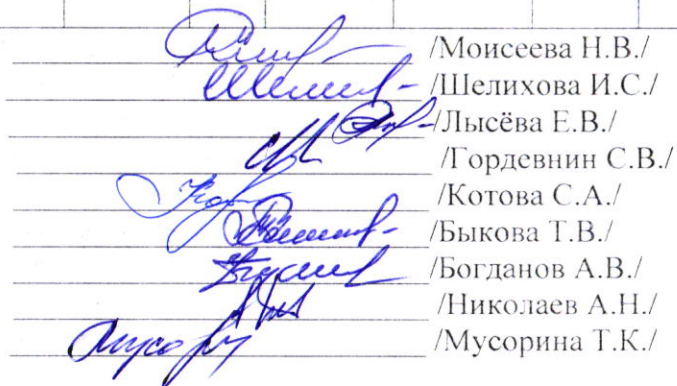 /Моисеева Н.В./
/Шелихова И.С./
/Лысёва Е.В./
/Гордевнин С.В./
/Котова С.А./
/Быкова Т.В./
/Богданов А.В./
/Николаев А.Н./
/Мусорина Т.К./